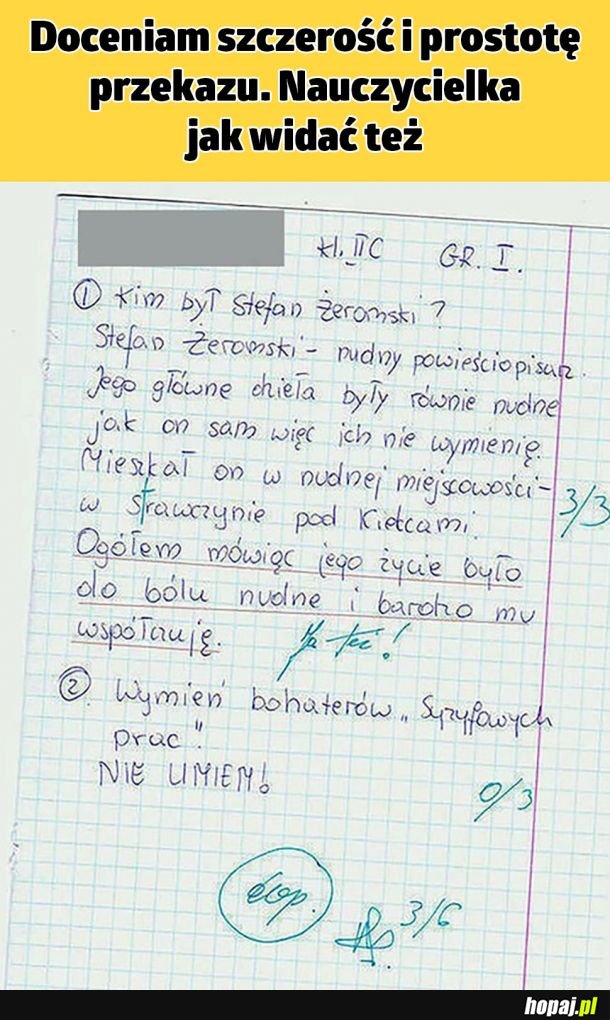 Doceniam szczerość i prostotę
przekazu. Nauczycielka
jak widać też
kl. II C GR. I.
① Kim był Stefan Żeromski?
Stefan Żeromski - nudny powieściopisarz.
Jego główne dzieła były równie nudne
jak on sam więc ich nie wymienię.
Mieszkał on w nudnej miejscowości -
w Strawczynie pod Kielcami.
3/3
Ogółem mówiąc jego życie było
do bólu nudne i bardzo mu
współczuję. Ja też!
② Wymień bohaterów „Syzyfowych
prac".
NIE UMIEM!
0/3
dop. 3/6
hopaj.pl